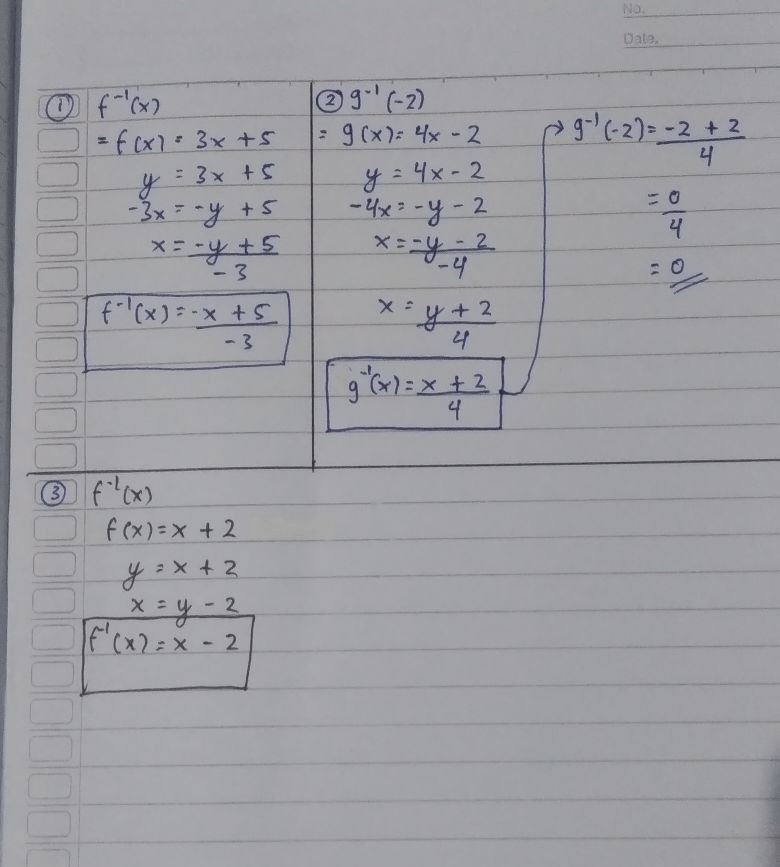 No.
Date.
① f⁻¹(x)
= f(x) = 3x + 5
y = 3x + 5
-3x = -y + 5
x = -y + 5
-3
f⁻¹(x) = -x + 5
-3
② g⁻¹(-2)
= g(x) = 4x - 2
y = 4x - 2
-4x = -y - 2
x = -y - 2
-4
x = y + 2
4
g⁻¹(x) = x + 2
4
→ g⁻¹(-2) = -2 + 2
4
= 0
4
= 0
③ f⁻¹(x)
f(x) = x + 2
y = x + 2
x = y - 2
f⁻¹(x) = x - 2